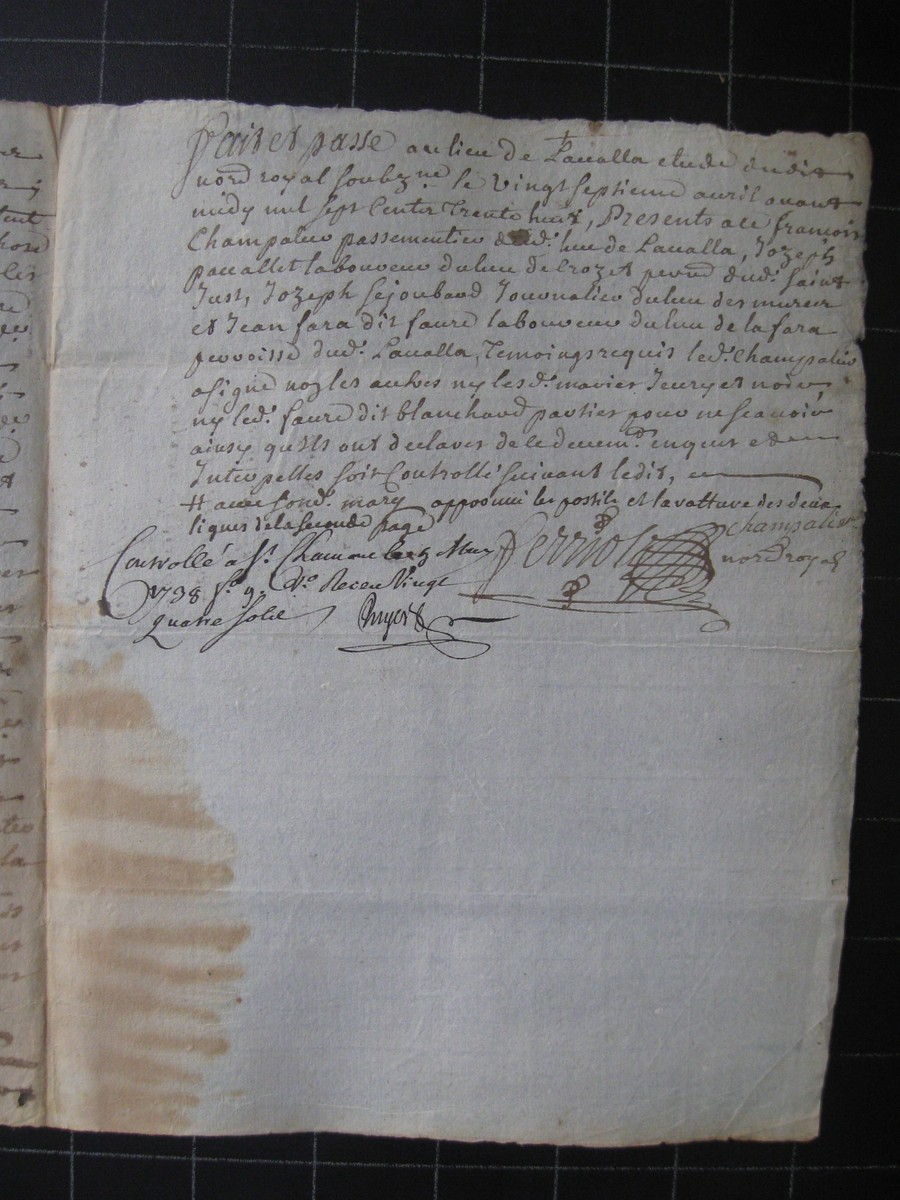 Fait et passé au lieu de Lavalla etude dudit
nore royal soubzne. le vingt septieme avril avant
midy mil sept Cents Trente huit, Presents a ce francois
Champalier passementier dud. lieu de Lavalla, Jozeph
pavallet laboureur du lieu de Crozet pere dud. Saint
Just, Jozeph Sejoubard Journalier du lieu des mures
et Jean fara dit faure laboureur du lieu de la fara
perroisse dud. Lavalla, Temoings requis led. Champalier
a signé no les autres ny lesd. marier Jeury et
ny led. faure dit blanchard parties pour ne scavoir
ainsy quils ont declaré de ce enquis et
Interpellés soit Controllé suivant ledit,
# avec sond. mary approuvé la postile et la rature des deux
lignes de la seconde page
Champalier
Perriolo
nore royal
Controllé a St. Chamon le 3 May
1738 fo. 9 Vo. Receu Vingt
quatre sols